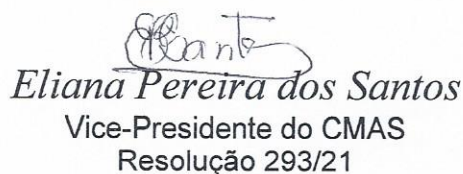 Eliana Pereira dos Santos
Vice-Presidente do CMAS
Resolução 293/21